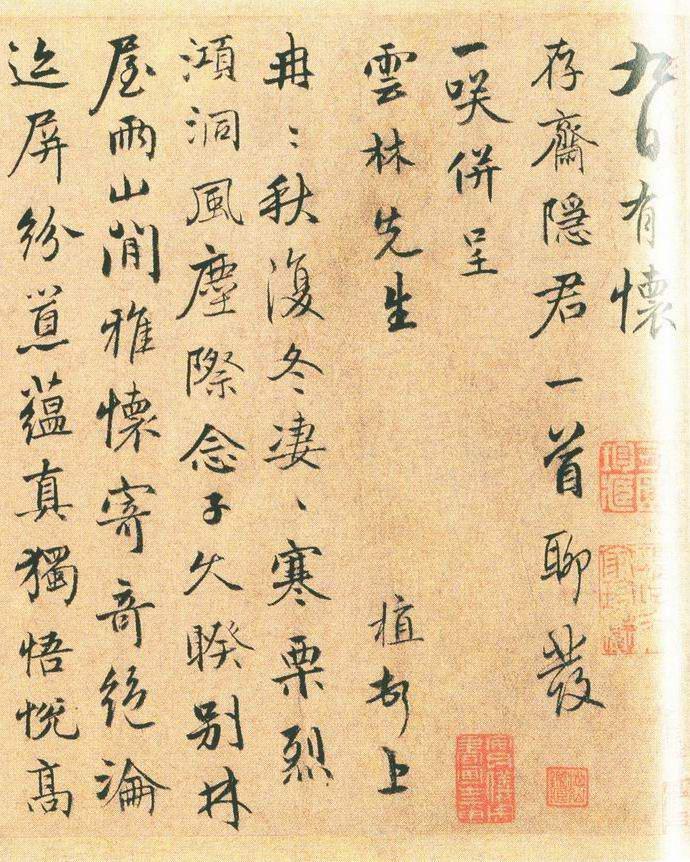 九日有懷
存齋隱君一首聊發
一咲併呈
雲林先生
植頓上
冉〻秋復冬凄〻寒栗烈
澒洞風塵際念子久暌别林
屋兩山間雅懷寄奇絕淪
迹屏紛囂蘊真獨悟悅高